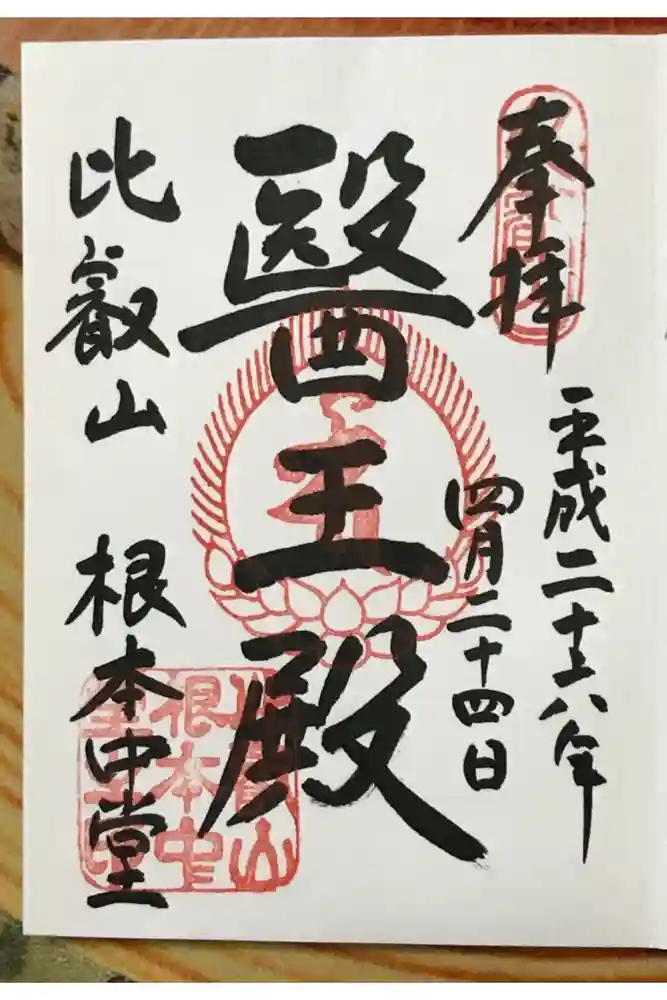 奉拝
平成二十六年
四月二十四日
醫王殿
比叡山 根本中堂
根本中